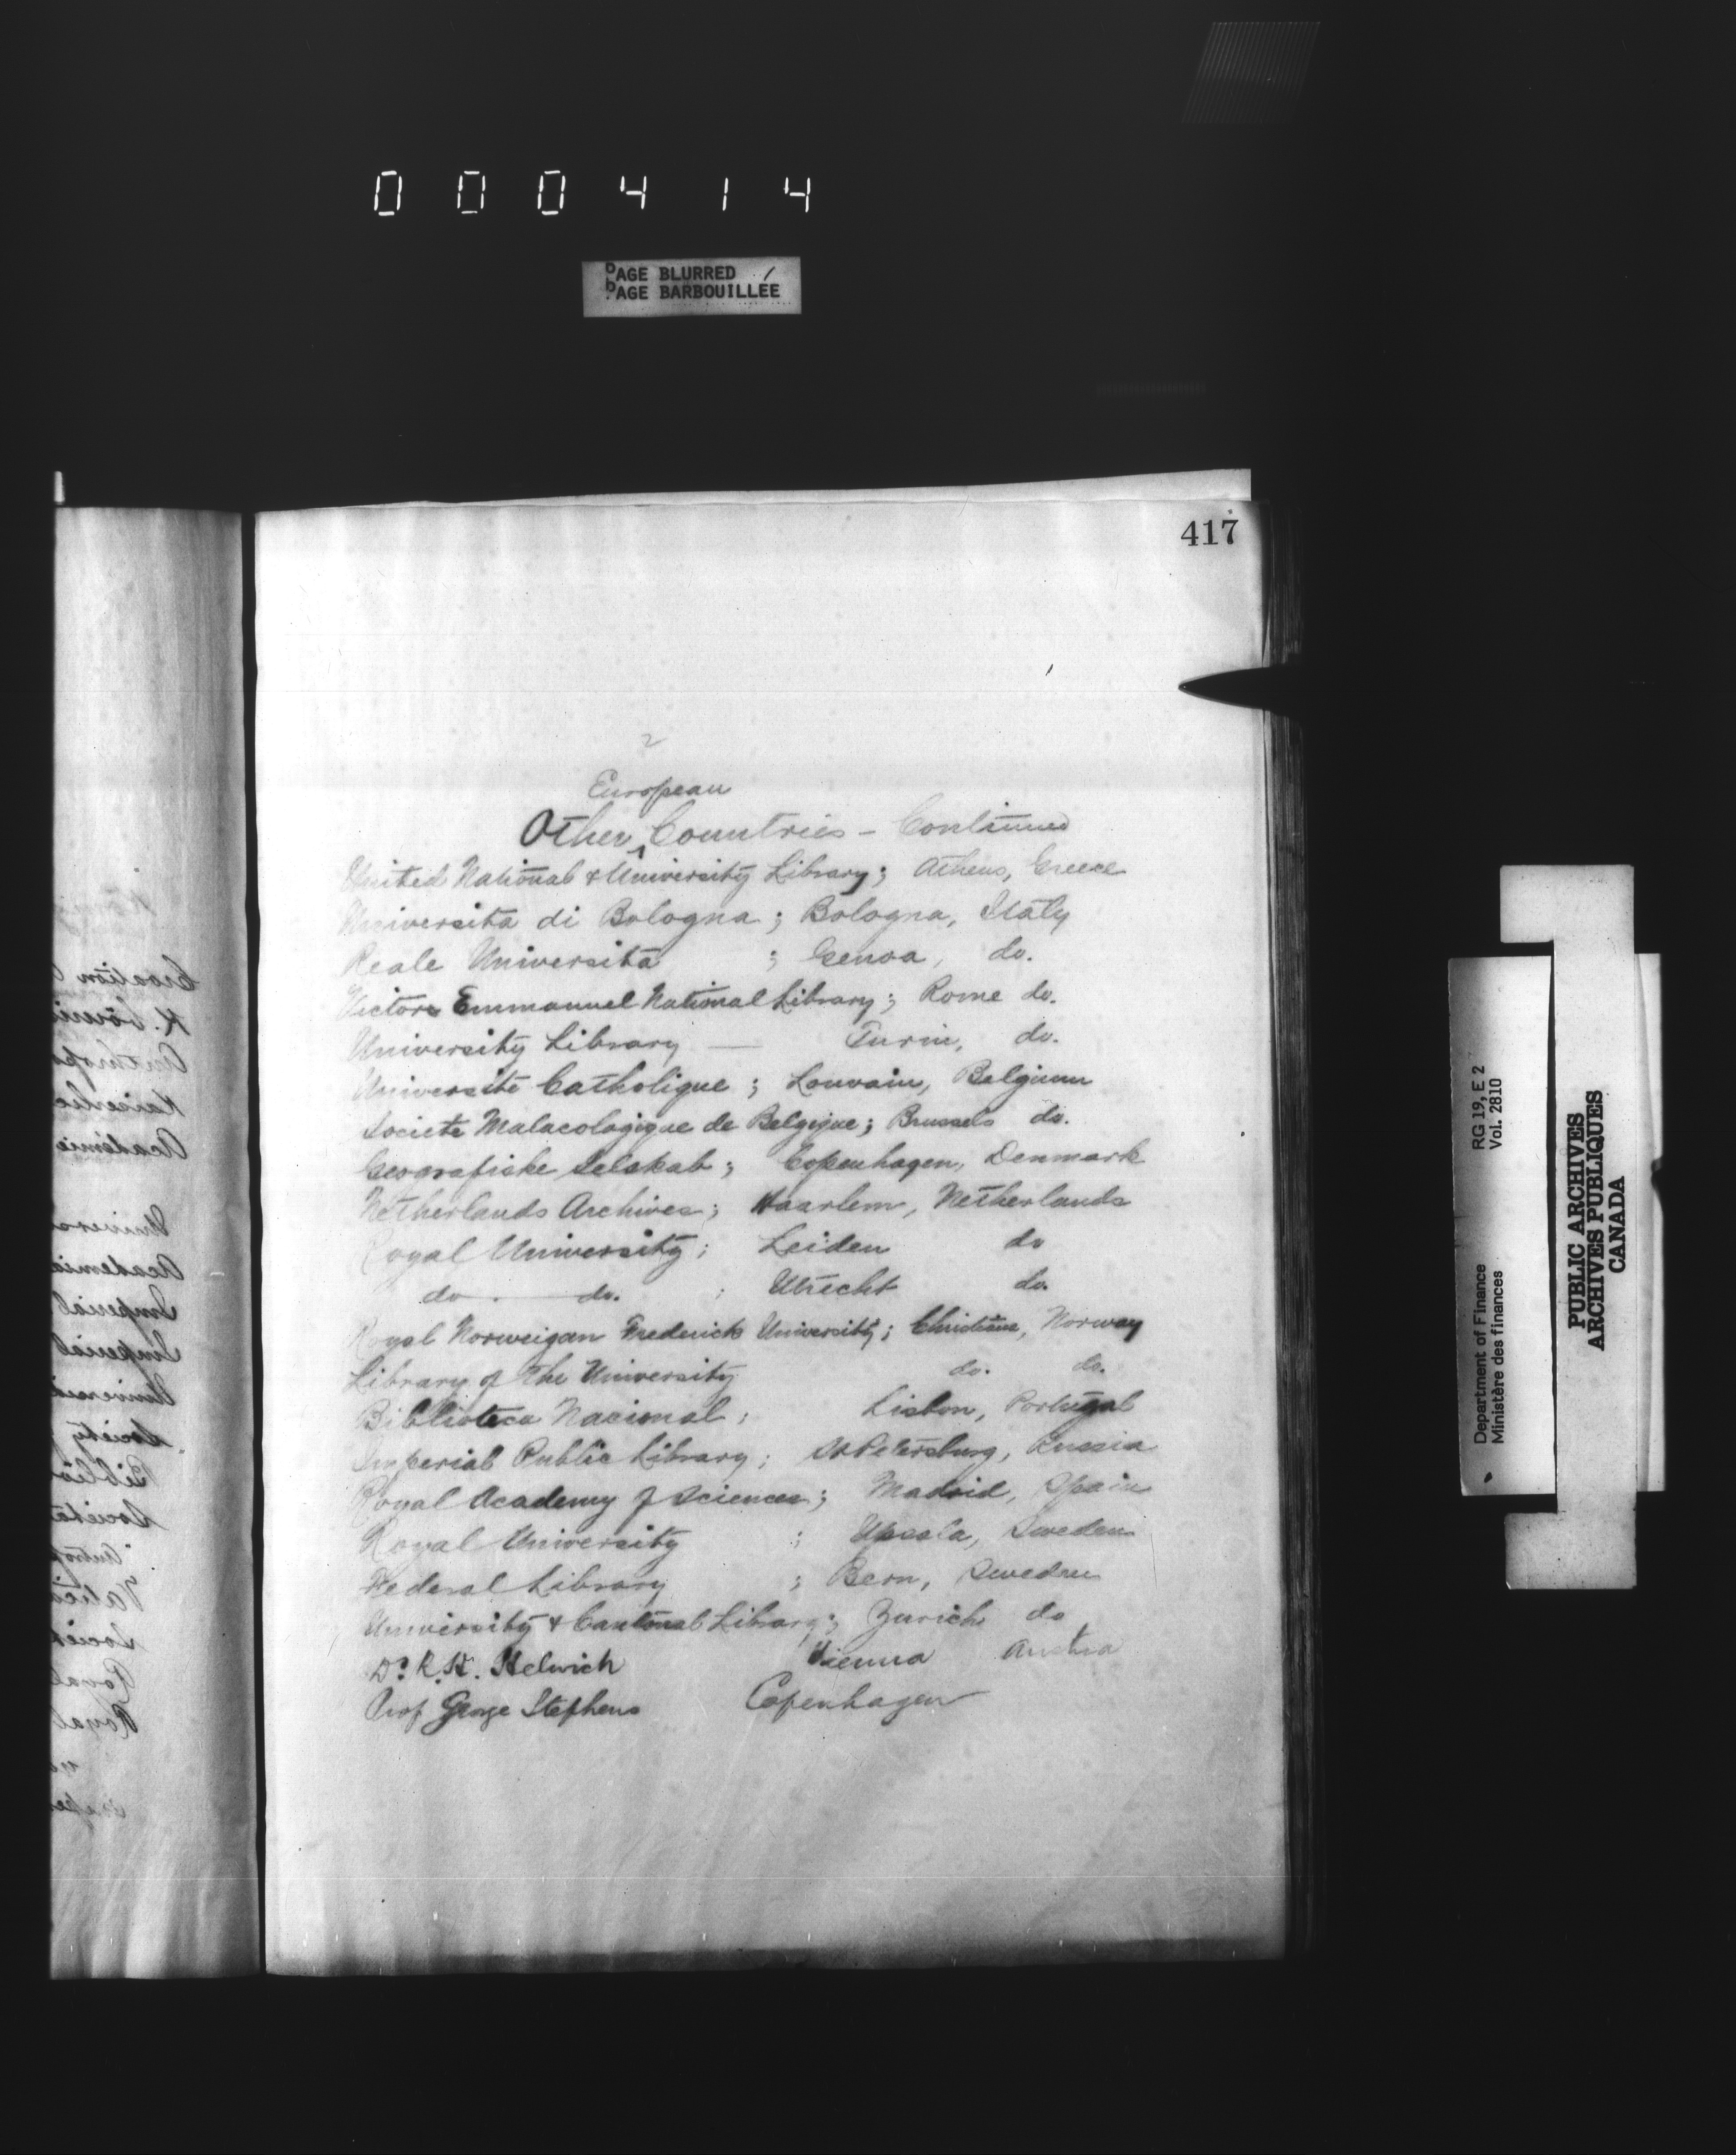 000414
PAGE BLURRED
PAGE BARBOUILLÉE
417
2
European
Other Countries - Continued
United National & University Library; Athens, Greece
Universita di Bologna; Bologna, Italy
Reale Universita ; Genoa, do.
Victor Emmanuel National Library; Rome do.
University Library — Turin, do.
Université Catholique; Louvain, Belgium
Societe Malacologique de Belgique; Brussels do.
Geografiske Selskab; Copenhagen, Denmark
Netherlands Archives; Haarlem, Netherlands
Royal University; Leiden do
do. do. ; Utrecht do.
Royal Norweigan Frederick University; Norway
Library of the University do. do.
Biblioteca Nacional; Lisbon, Portugal
Imperial Public Library; St Petersburg, Russia
Royal Academy of Sciences; Madrid, Spain
Royal University ; Upsala, Sweden
Federal Library ; Bern, Sweden
University & Cantonal Library; Zurich do
Dr. R. H. Helwich Vienna Austria
Prof George Stephens Copenhagen
Croation
Anthrop
Kaiserlic
Académie
Univers
Academie
Imperial
Imperial
Universi
Society
Biblio
Societa
Societ
Royal
Royal
Department of Finance RG 19, E 2
Ministère des finances Vol. 2810
PUBLIC ARCHIVES
ARCHIVES PUBLIQUES
CANADA